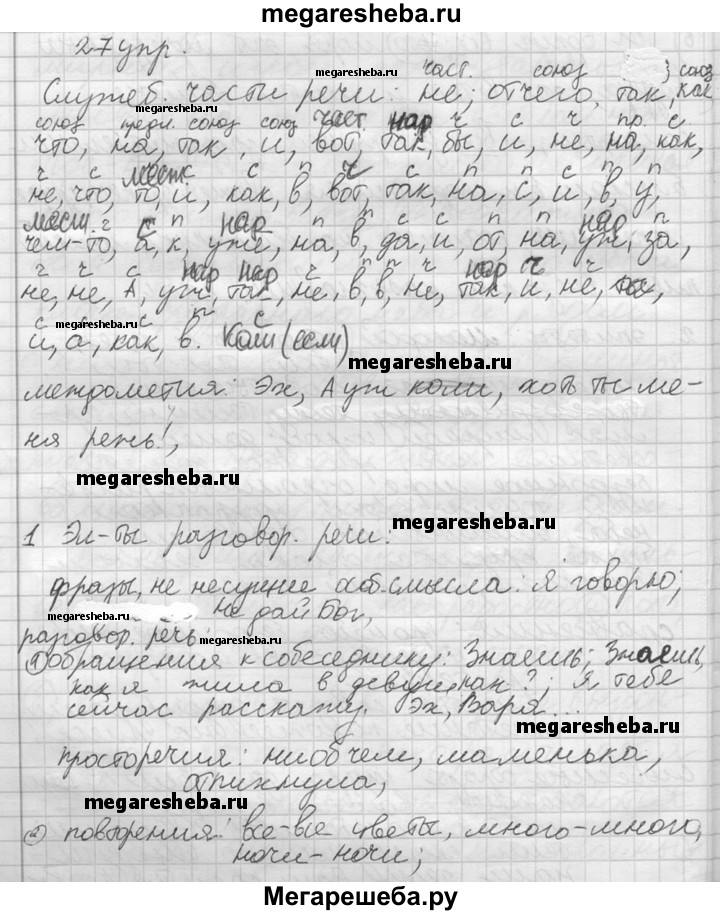 megaresheba.ru
27 упр.
megaresheba.ru
част. союз } союз
Служеб. части речи: не, отчего, так, как
megaresheba.ru
союз предл. союз союз част. нар ч с ч пр. с
что, на, так, и, вот, так, бы, и, не, на, как,
ч с мест. с п ч с п п с п п
не, что, то, и, как, в, вот, так, на, с, и, в, у,
мест. ч с п нар п п с с п п нар п
чем-то, а, к, уже, на, в, да, и, от, на, уж, за,
ч ч с нар нар ч п п ч нар ч ч
не, не, А, уж, так, не, в, в, не, так, и, не,
с с п с
megaresheba.ru
и, а, как, в. Коли (если)
megaresheba.ru
междометия: Эх, А уж коли, хоть ты ме-
ня режь!,
megaresheba.ru
megaresheba.ru
1 Эл-ты разговор. речи:
фразы, не несущие соб. смысла: Я говорю;
megaresheba.ru
Не дай Бог,
разговор. речь:
1) обращения к собеседнику: Знаешь; Знаешь,
как я жила в девушках?; Я тебе
сейчас расскажу. Эх, Варя...
megaresheba.ru
просторечия: ни об чем, маменька,
отпихнула,
megaresheba.ru
2) повторения: все-все цветы, много-много,
ночи-ночи;
megaresheba.ru
Мегарешеба.ру